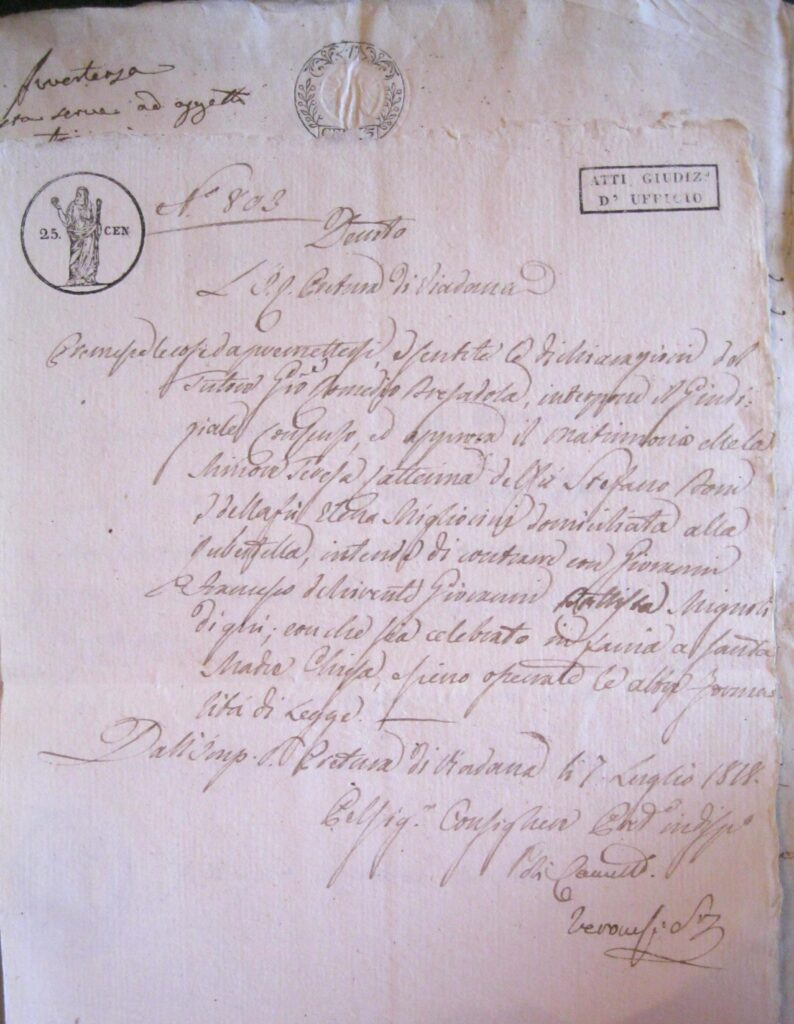 Avvertenza
serve ad oggetti
25. CEN
N.º 803
ATTI GIUDIZ.
D' UFFICIO
Decreto
L' I. R. Pretura di Viadana
Premesse le cose da premettersi, e sentite le dichiarazioni del
Tutore Gio. Romedio Bresadola, interpone il Giudi-
ziale Consenso, ed approva il matrimonio che la
Minore Teresa Catterina del fu Stefano Boni
e della fu Elena Migliorini domiciliata alla
intende di contrare con Giovanni
Francesco del vivente Giovanni Battista Mignoli
di qui; con che sia celebrato in faccia a Santa
Madre Chiesa, e sieno osservate le altre forma-
lità di Legge.
Dall' Imp. R. Pretura di Viadana li 7. Luglio 1818.
Pel Sig.r Consigliere Pret.e indisp.o
Veronesi